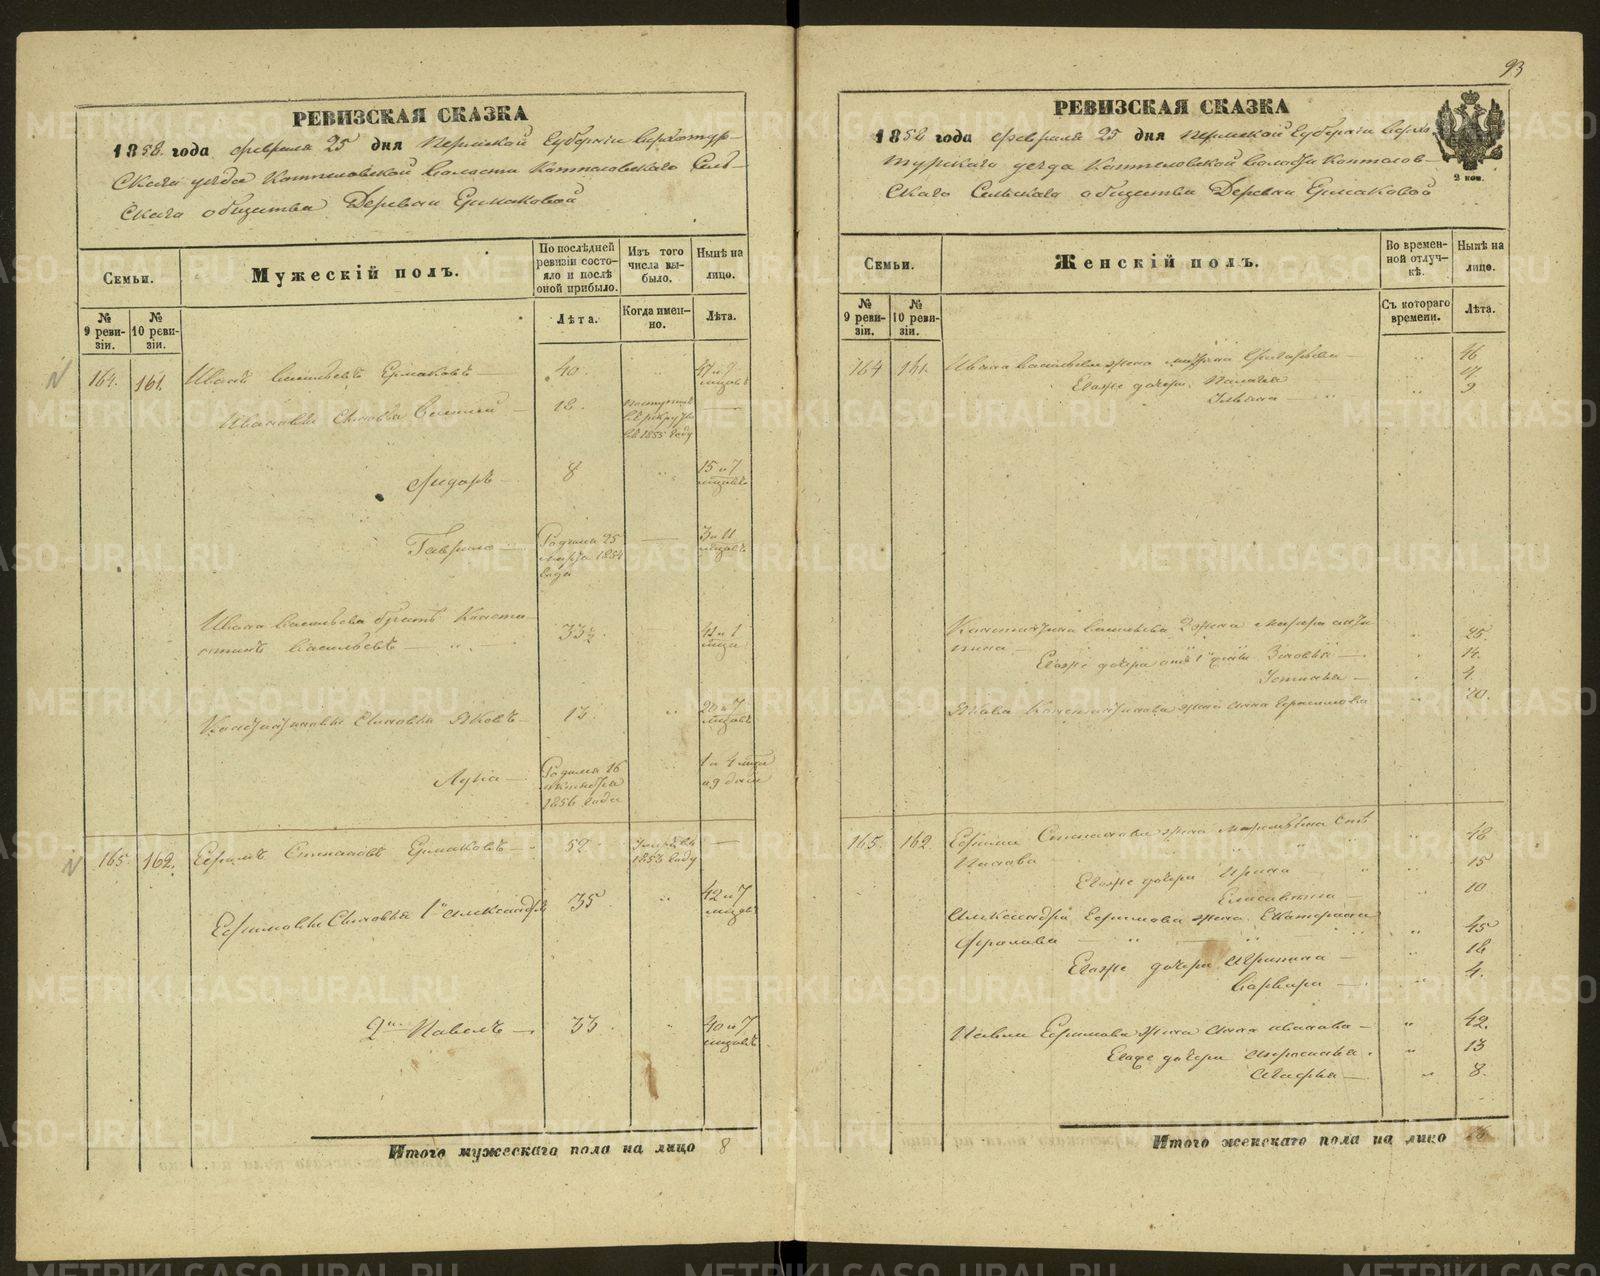 93
РЕВИЗСКАЯ СКАЗКА
1858. года февраля 25 дня Пермской Губернiи Верхотур-
скаго уѣзда Коптеловской Волости Коптеловскаго Сель-
скаго общества Деревни Ермаковой
Семьи.
Мужескiй полъ.
По послѣдней ревизiи состо-яло и послѣ оной прибыло.
Изъ того числа вы-было.
Нынѣ на лицо.
№ 9 реви-зiи.
№ 10 реви-зiи.
Лѣта.
Когда имен-но.
Лѣта.
164. 161. Иванъ Васильевъ Ермаковъ — 40 " 47 и 7 мцовъ
Ивановы Сыновья Василiй — 18. поступилъ въ рекруты въ 1855 году —
Ѳидоръ 8 " 15 и 7 мцовъ
Гаврило — Родился 25 марта 1854 года — 3 и 11 мцовъ
Ивана Васильева братъ Консто-
нтинъ Васильевъ — 33½ 41 и 1 мца
Константиновы Сыновья Яковъ — 13 " 20 и 7 мцовъ
Лука — Родился 16 1856 года 1 и 4 мца и 9 дней
165. 162. Ефимъ Степановъ Ермаковъ 52 Умеръ въ 1853 году —
Ефимовы Сыновья 1й Александръ 35 " 42 и 7 мцовъ
2й Павелъ — 33 " 40 и 7 мцовъ
Итого мужескаго пола на лицо 8
РЕВИЗСКАЯ СКАЗКА
1858 года февраля 25 дня Пермской Губернiи Верхо-
турскаго уѣзда Коптеловской Волости Коптелов-
скаго Сельскаго общества Деревни Ермаковой
2 коп.
Семьи.
Женскiй полъ.
Во времен-ной отлуч-кѣ.
Нынѣ на лицо.
№ 9 реви-зiи.
№ 10 реви-зiи.
Съ котораго времени.
Лѣта.
164 161. Ивана Васильева жена — " 46
Егоже дочери Палагея 17
Ульяна — " 9
Константина Васильева 2 жена " 25.
Егоже дочери отъ 1й жены Зиновья — 14.
Устинья — 4.
Якова Константинова жена Анна Герасимова " 20.
165. 162. Ефима Степанова жена Сте-
панова — " 48
Егоже дочери Ирина " 15
Елисавета — 10.
Александра Ефимова жена Екатерина
Фролова — " 45
Егоже дочери — " 18
Варвара — " 4.
Павла Ефимова жена Анна Иванова — " 42.
Егоже дочери Афросинья. " 13
Агафья — " 8.
Итого женскаго пола на лицо
METRIKI.GASO-URAL.RU